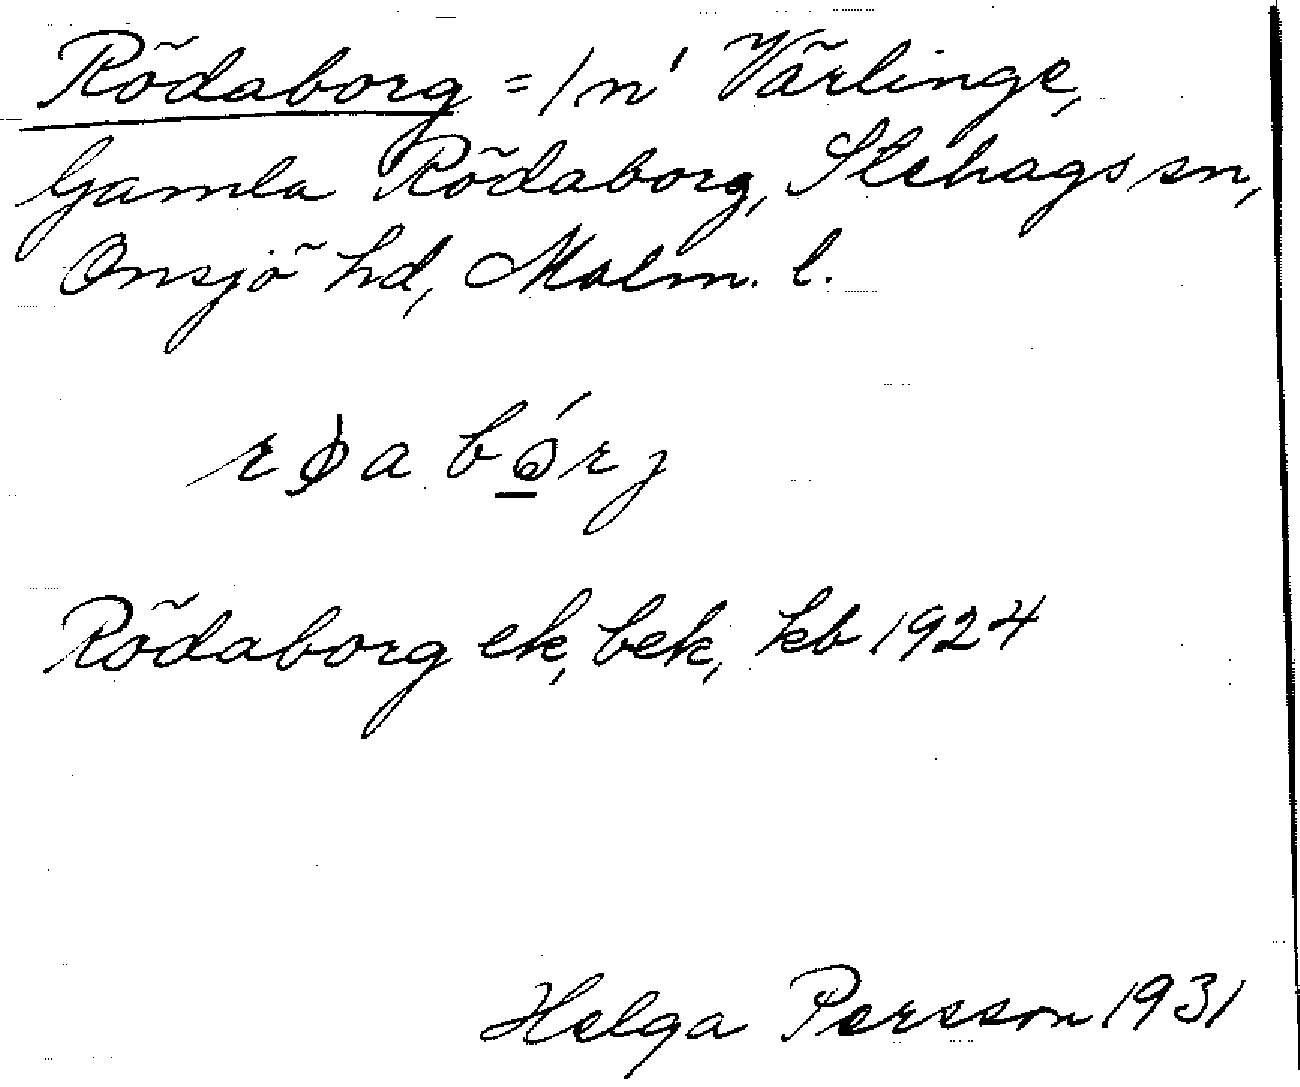 Rödaborg = 1 n' Värlinge,
Gamla Rödaborg, Stehags sn,
Onsjö hd, Malm. l.
røa bórj
Rödaborg ek, bek, kb 1924
Helga Persson 1931